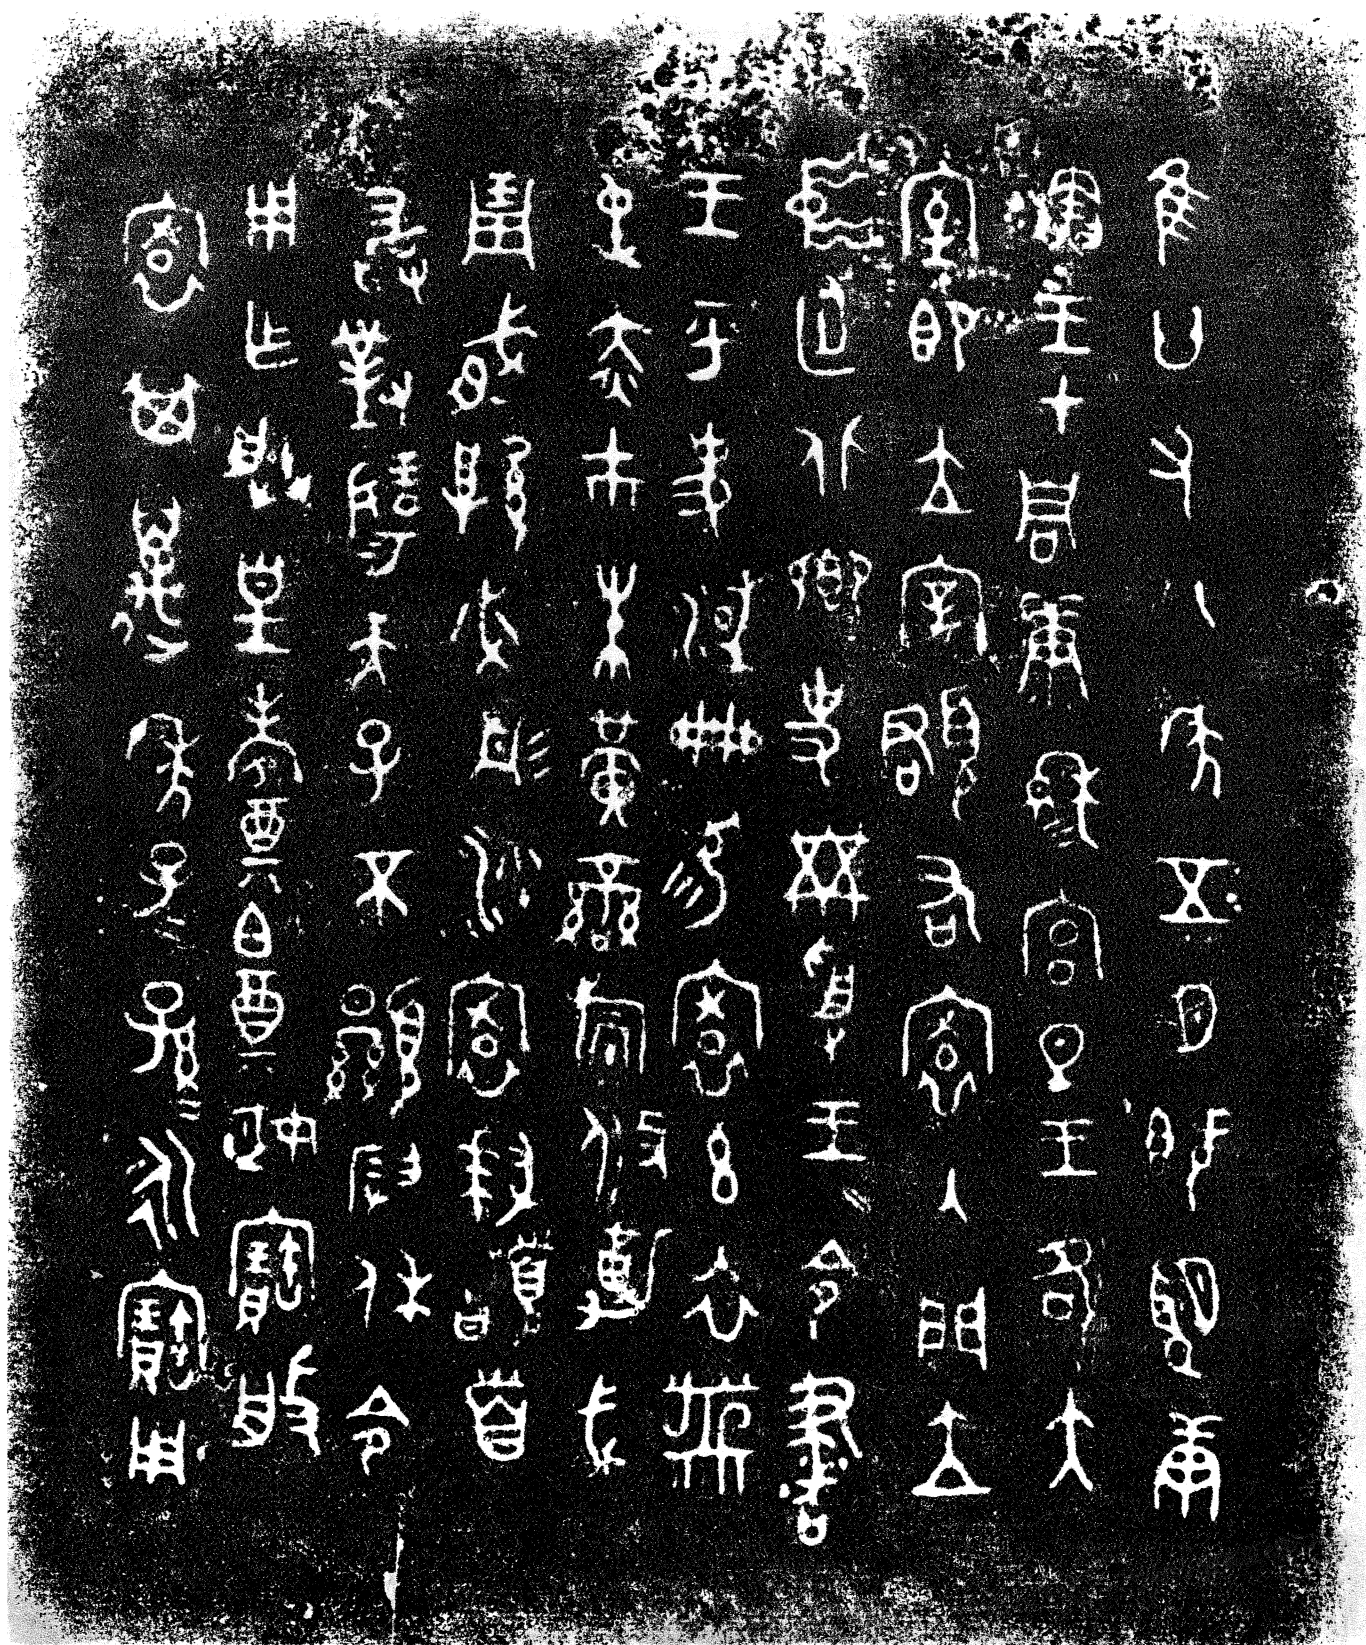 隹廿又八年五月既望庚
寅王才周康穆宮旦王各大
室即立宰頵右寰入門立
中廷北鄉史黹受王令書
王乎史減冊易寰玄衣黹
屯赤巿朱黃䜌旂攸勒戈
琱㦰厚必彤沙寰拜稽首
敢對揚天子不顯叚休令
用乍朕皇考奠白奠姬寶盤
寰其萬年子子孫孫永寶用